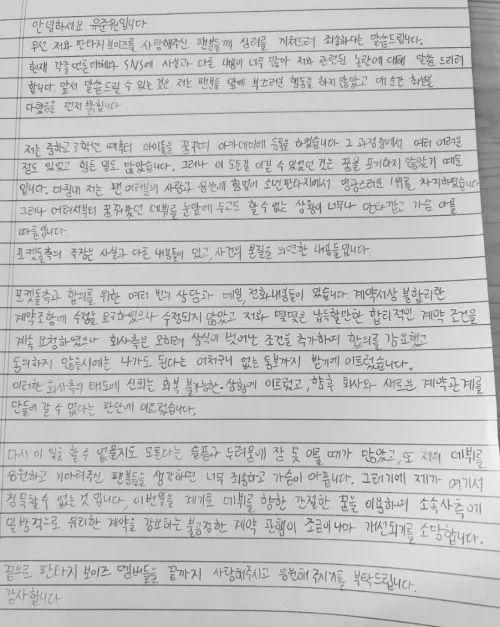 안녕하세요 유준원입니다.
우선 저와 판타지보이즈를 사랑해주신 팬분들께 심려를 끼쳐드려 죄송하다는 말씀드립니다.
현재 각종 언론매체와 SNS에 사실과 다른 내용이 너무 많아 저와 관련된 논란에 대해 말씀 드리려
합니다. 앞서 말씀드릴 수 있는 것은 저는 팬분들 앞에 부끄러운 행동을 하지 않았고 매 순간 최선을
다했음을 먼저 밝힙니다
저는 중학교 3학년 때부터 아이돌을 꿈꾸며 아카데미에 등원 하였습니다. 그 과정중에서 여러 어려운
점도 있었고 힘든 일도 많았습니다. 그러나 이 모든걸 이길 수 있었던 것은 꿈을 포기하지 않았기 때문
입니다. 마침내 저는 팬 여러분의 사랑과 응원에 힘입어 소년판타지에서 영광스러운 1위를 차지하였습니다
그러나 어려서부터 꿈꾸왔던 데뷔를 눈앞에 두고도 할 수 없는 상황이 너무나 안타깝고 가슴 아플
따름입니다.
포켓돌측의 주장은 사실과 다른 내용들이 있고, 사건의 본질을 외면한 내용들입니다.
포켓돌측과 합의를 위한 여러 번의 상담과 메일, 전화내용들이 있습니다. 계약서상 불합리한
계약조항에 수정을 요구하였으나 수정되지 않았고 저와 부모님은 납득할만한 합리적인 계약 조건을
계속 요청하였으나 회사측은 오히려 상식이 벗어난 조건을 추가하며 합의를 강요했고
동의하지 않을시에는 나가도 된다는 어처구니 없는 통보까지 받기에 이르렀습니다.
이러한 회사측의 태도에 신뢰는 회복 불가능한 상황에 이르렀고, 향후 회사와 새로운 계약관계를
만들어 갈 수 없다는 판단에 이르렀습니다.
다시 이 일을 할 수 없을지도 모른다는 슬픔과 두려움에 잠 못 이룰 때가 많았고, 또 저의 데뷔를
응원하고 기다려주신 팬분들을 생각하면 너무 죄송하고 가슴이 아픕니다. 그러기에 제가 여기서
침묵할 수 없는 것입니다, 이번일을 계기로 데뷔를 향한 간절한 꿈을 이용하여 소속사측에
일방적으로 유리한 계약을 강요하는 불공정한 계약 관행이 조금이나마 개선되기를 소망합니다.
끝으로 판타지 보이즈 멤버들을 끝까지 사랑해주시고 응원해주시기를 부탁드립니다.
감사합니다